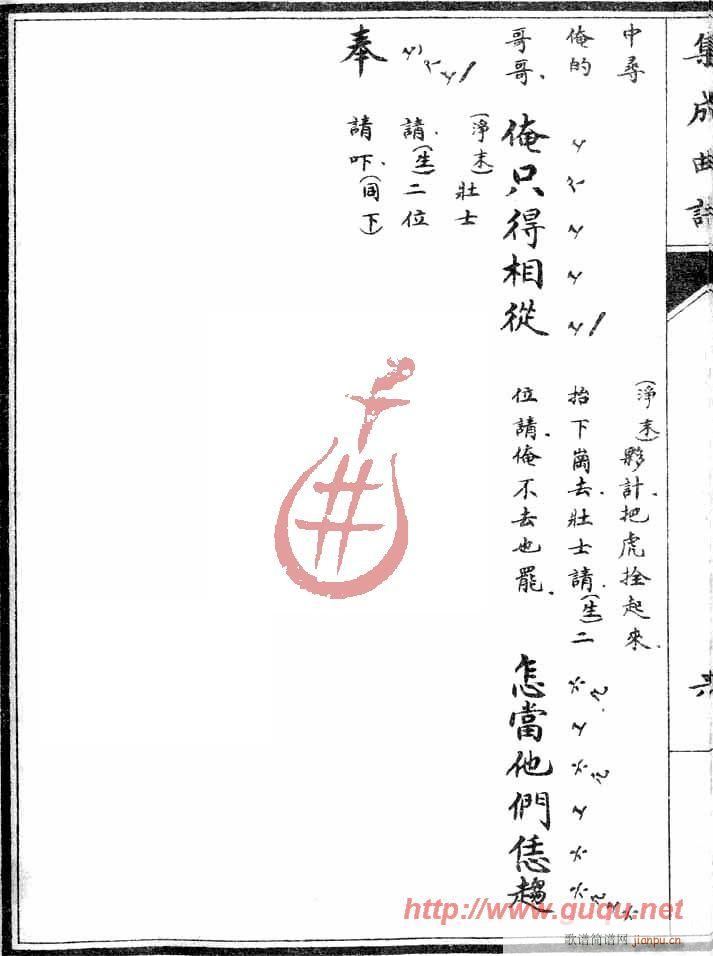 集成曲譜
中尋
(淨末)夥計.把虎拴起來.
俺的
抬下崗去.壯士請.(生)二
哥哥.
俺只得相從
位請.俺不去也罷.
怎當他們恁趨
奉
(淨末)壯士
請.(生)二位
請吓.(同下)
http://www.guqu.net
歌谱简谱网 jianpu.cn